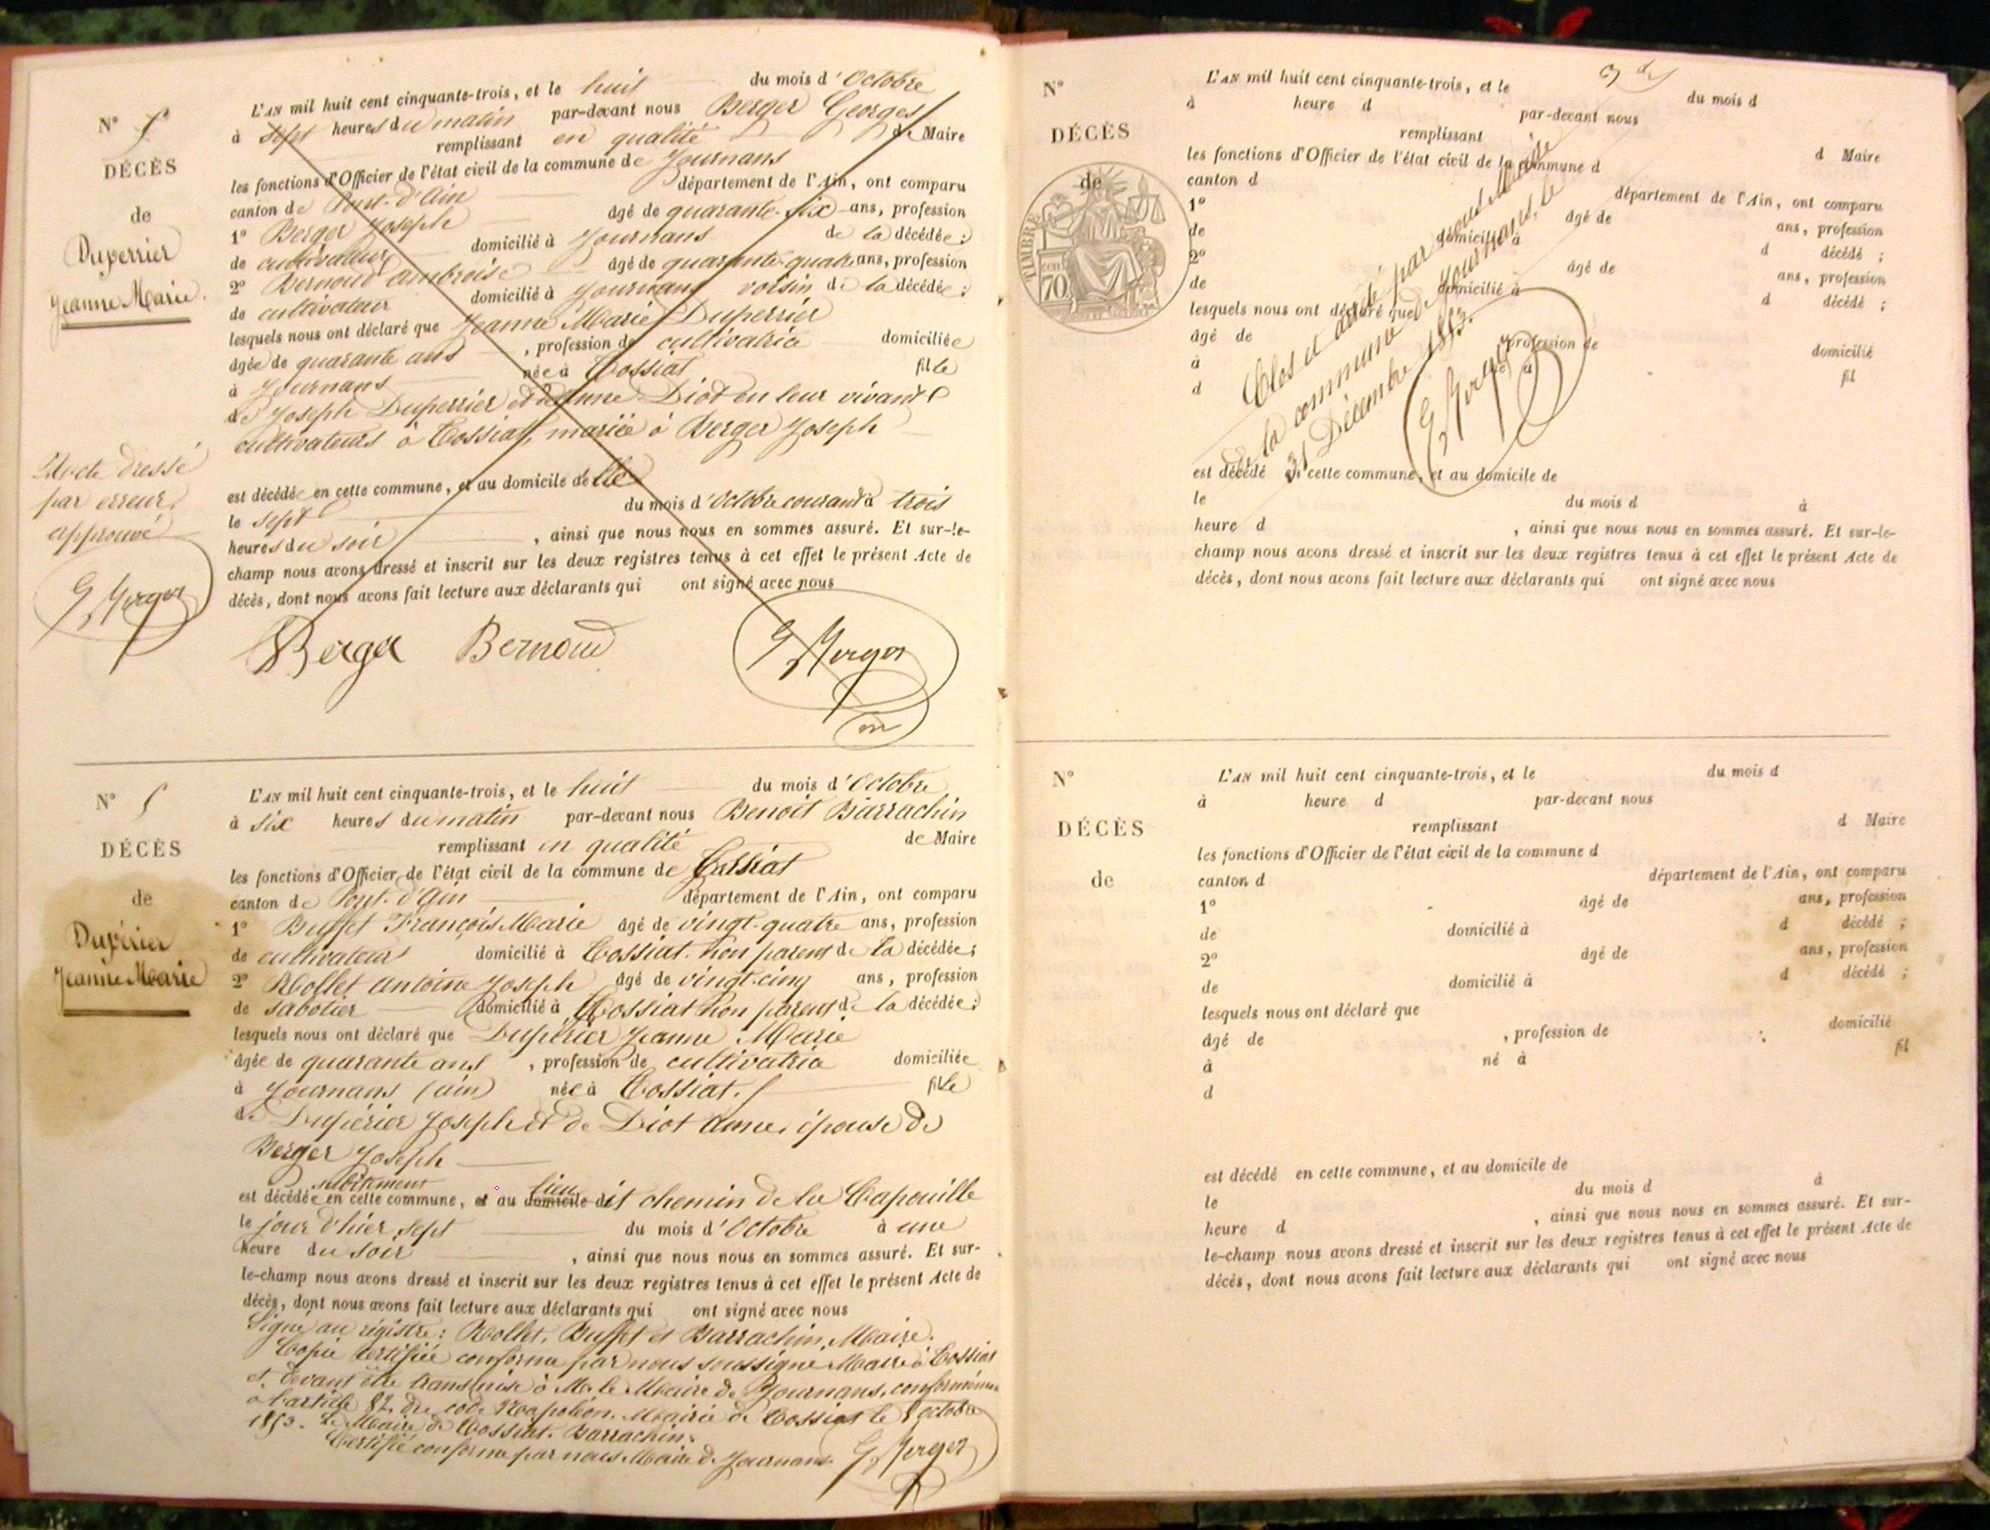 N° 5
DÉCÈS
de
Duperrier
Jeanne Marie.
L'AN mil huit cent cinquante-trois, et le huit du mois d'Octobre
à sept heures du matin par-devant nous Berger Georges
remplissant en qualité de Maire
les fonctions d'Officier de l'état civil de la commune de Journans
canton de Pont-d'Ain département de l'Ain, ont comparu
1° Berger Joseph âgé de quarante-six ans, profession
de cultivateur domicilié à Journans de la décédée;
2° Bernoud ambroise âgé de quarante-quatre ans, profession
de cultivateur domicilié à Journans voisin de la décédée;
lesquels nous ont déclaré que Jeanne Marie Duperrier
âgée de quarante ans, profession de cultivatrice domiciliée
à Journans née à Tossiat fille
de Joseph Duperrier et de anne Diot en leur vivant
cultivateurs à Tossiat, mariée à Berger Joseph
est décédée en cette commune, et au domicile de elle
le sept du mois d'Octobre courant à trois
heures du soir, ainsi que nous nous en sommes assuré. Et sur-le-
champ nous avons dressé et inscrit sur les deux registres tenus à cet effet le présent Acte de
décès, dont nous avons fait lecture aux déclarants qui ont signé avec nous
Berger Bernoud G Berger
Acte dressé
par erreur,
approuvé
G Berger
N° 5
DÉCÈS
de
Dupérier
Jeanne Marie
L'AN mil huit cent cinquante-trois, et le huit du mois d'Octobre
à six heures du matin par-devant nous Benoit Barrachin
remplissant en qualité de Maire
les fonctions d'Officier de l'état civil de la commune de Tossiat
canton de Pont-d'Ain département de l'Ain, ont comparu
1° Buffet François Marie âgé de vingt-quatre ans, profession
de cultivateur domicilié à Tossiat non parent de la décédée;
2° Rollet antoine Joseph âgé de vingt-cinq ans, profession
de sabotier domicilié à Tossiat non parent de la décédée;
lesquels nous ont déclaré que Dupérier Jeanne Marie
âgée de quarante ans, profession de cultivatrice domiciliée
à Journans (ain) née à Tossiat. fille
de Dupérier Joseph et de Diot anne, épouse de
Berger Joseph
subitement
est décédée en cette commune, et au domicile lieu dit chemin de la Capouille
le jour d'hier sept du mois d'Octobre à une
heure du soir, ainsi que nous nous en sommes assuré. Et sur-
le-champ nous avons dressé et inscrit sur les deux registres tenus à cet effet le présent Acte de
décès, dont nous avons fait lecture aux déclarants qui ont signé avec nous
Signé au registre: Rollet, Buffet et Barrachin, Maire.
Copie certifiée conforme par nous soussigné Maire à Tossiat
et devant être transmise à Mr le Maire de Journans, conformément
à l'article 82 du code Napoléon. Mairie de Tossiat le 8 octobre
1853. Le Maire de Tossiat. Barrachin.
Certifié conforme par nous Maire de Journans. G Berger
N°
DÉCÈS
de
TIMBRE
70
L'AN mil huit cent cinquante-trois, et le du mois d
à heure d par-devant nous
remplissant d Maire
les fonctions d'Officier de l'état civil de la commune d
canton d département de l'Ain, ont comparu
1° âgé de ans, profession
de domicilié à d décédé;
2° âgé de ans, profession
de domicilié à d décédé;
lesquels nous ont déclaré que
âgé de profession de domicilié
à né à fil
d
est décédé en cette commune, et au domicile de
le du mois d à
heure d, ainsi que nous nous en sommes assuré. Et sur-le-
champ nous avons dressé et inscrit sur les deux registres tenus à cet effet le présent Acte de
décès, dont nous avons fait lecture aux déclarants qui ont signé avec nous
Clos et arrêté par nous Maire
de la commune de Journans, le
31 Décembre 1853.
G Berger
N°
DÉCÈS
de
L'AN mil huit cent cinquante-trois, et le du mois d
à heure d par-devant nous
remplissant d Maire
les fonctions d'Officier de l'état civil de la commune d
canton d département de l'Ain, ont comparu
1° âgé de ans, profession
de domicilié à d décédé;
2° âgé de ans, profession
de domicilié à d décédé;
lesquels nous ont déclaré que
âgé de, profession de domicilié
à né à fil
d
est décédé en cette commune, et au domicile de
le du mois d à
heure d, ainsi que nous nous en sommes assuré. Et sur-
le-champ nous avons dressé et inscrit sur les deux registres tenus à cet effet le présent Acte de
décès, dont nous avons fait lecture aux déclarants qui ont signé avec nous